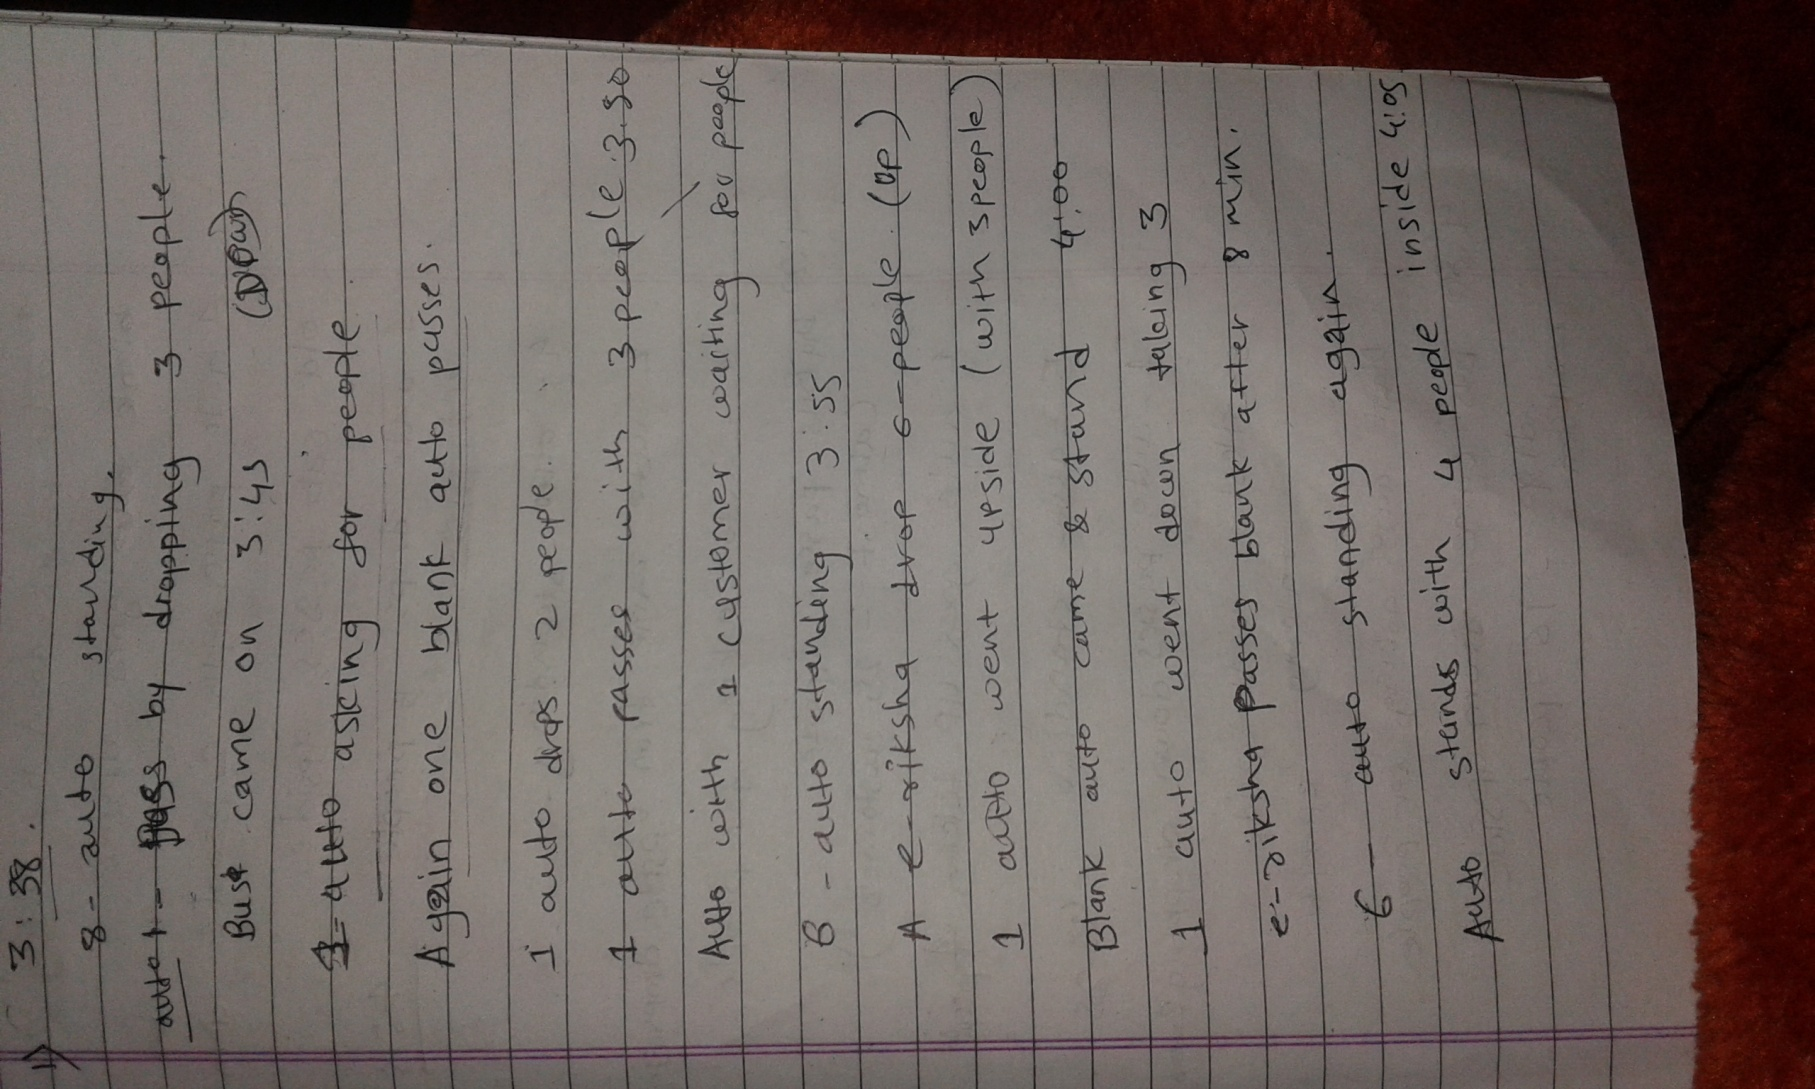 1) 3:38.
8 - auto standing.
auto 1 - pass by dropping 3 people.
Bus came on 3:45
1 - auto asking for people
Again one blank auto passes.
1 auto drops 2 people.
1 auto passes with 3 people 3:50
Auto with 1 customer waiting for people
6 - auto standing 3:55
A e-riksha drop 6-people. (UP)
1 auto went upside (with 3 people)
Blank auto came & stand 4:00
1 auto went down taking 3
e-riksha passes blank after 8 min.
6 - auto standing again.
Auto stands with 4 people inside 4:05